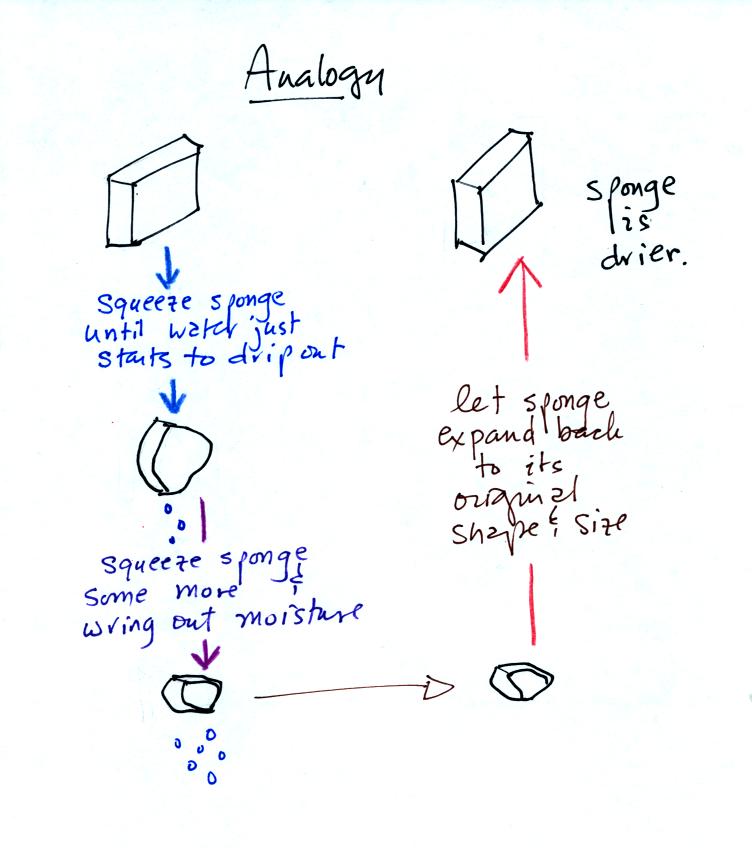 Analogy
squeeze sponge
until water just
starts to drip out
squeeze sponge
some more &
wring out moisture
let sponge
expand back
to its
original
shape & size
sponge
is
drier.